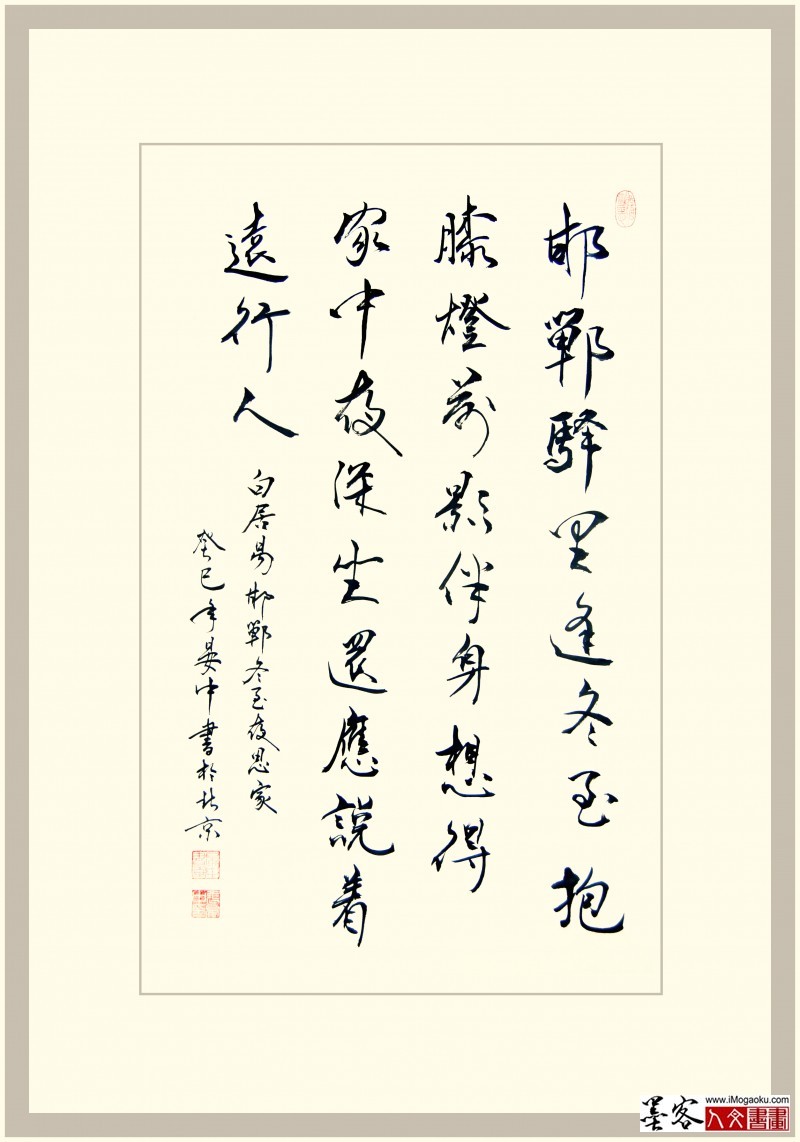 邯鄲驛里逢冬至抱
膝燈前影伴身想得
家中夜深坐還應説着
遠行人
白居易邯鄲冬至夜思家
癸巳年晏中書於北京
墨客
www.iMogaoku.com
人文書畫